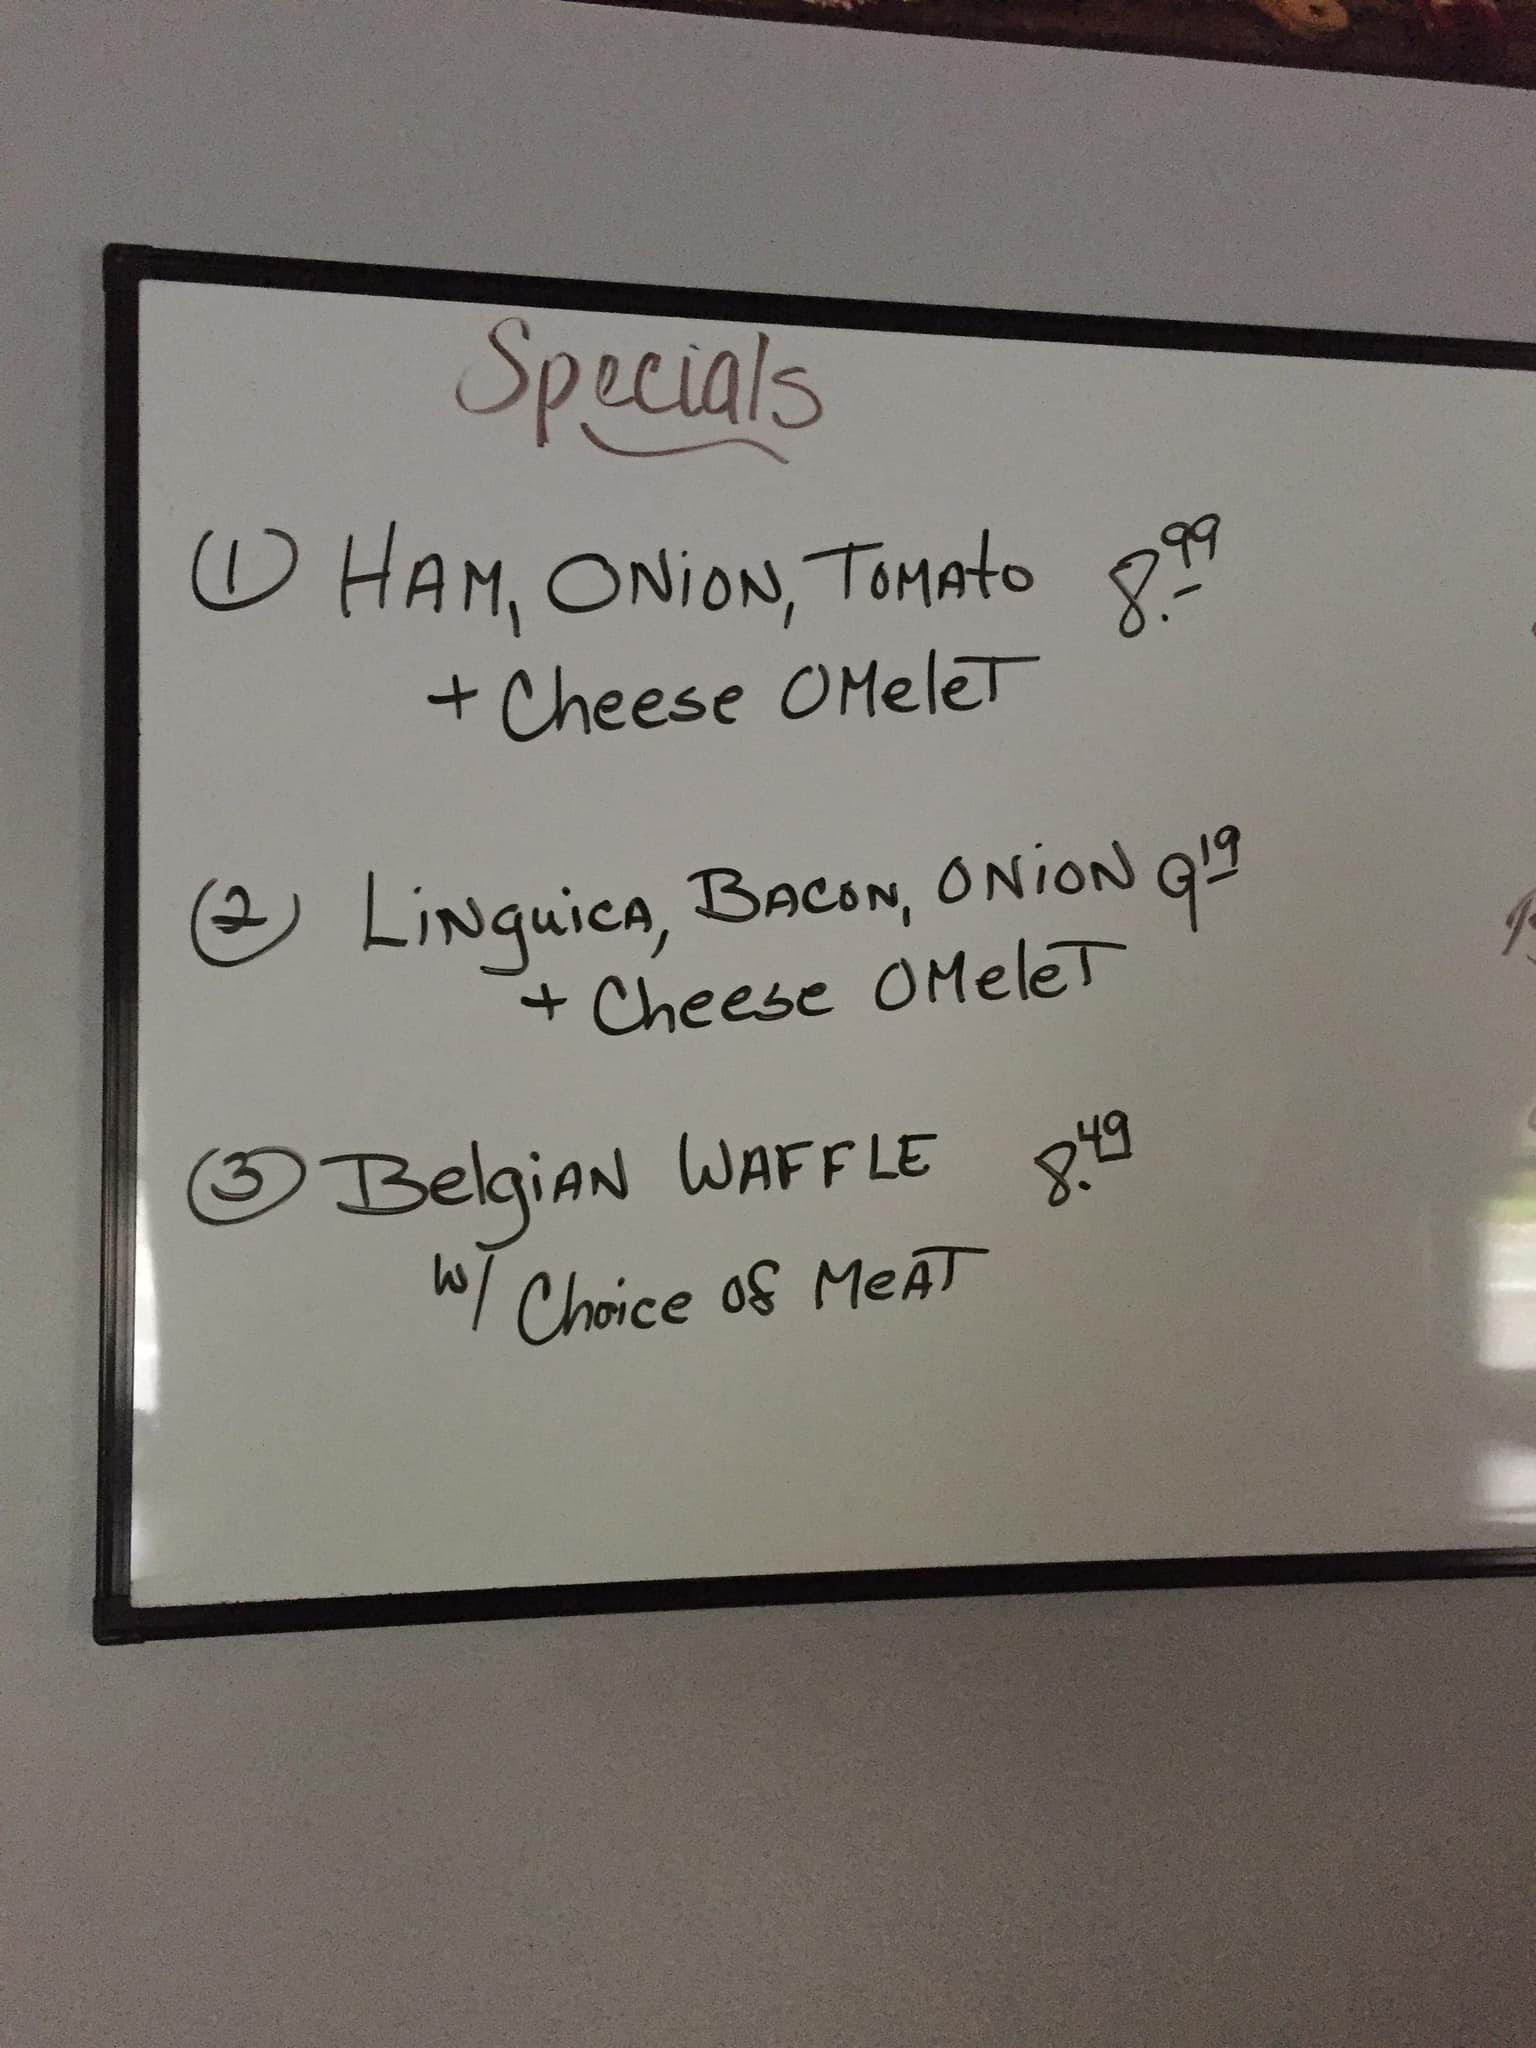 Specials
① HAM, ONION, TOMATO 8.99
+ Cheese OMeleT
② LiNguicA, BACON, ONION 9 19
+ Cheese OMeleT
③ BelgiAN WAFFLE 8.49
w/ Choice of MeAT